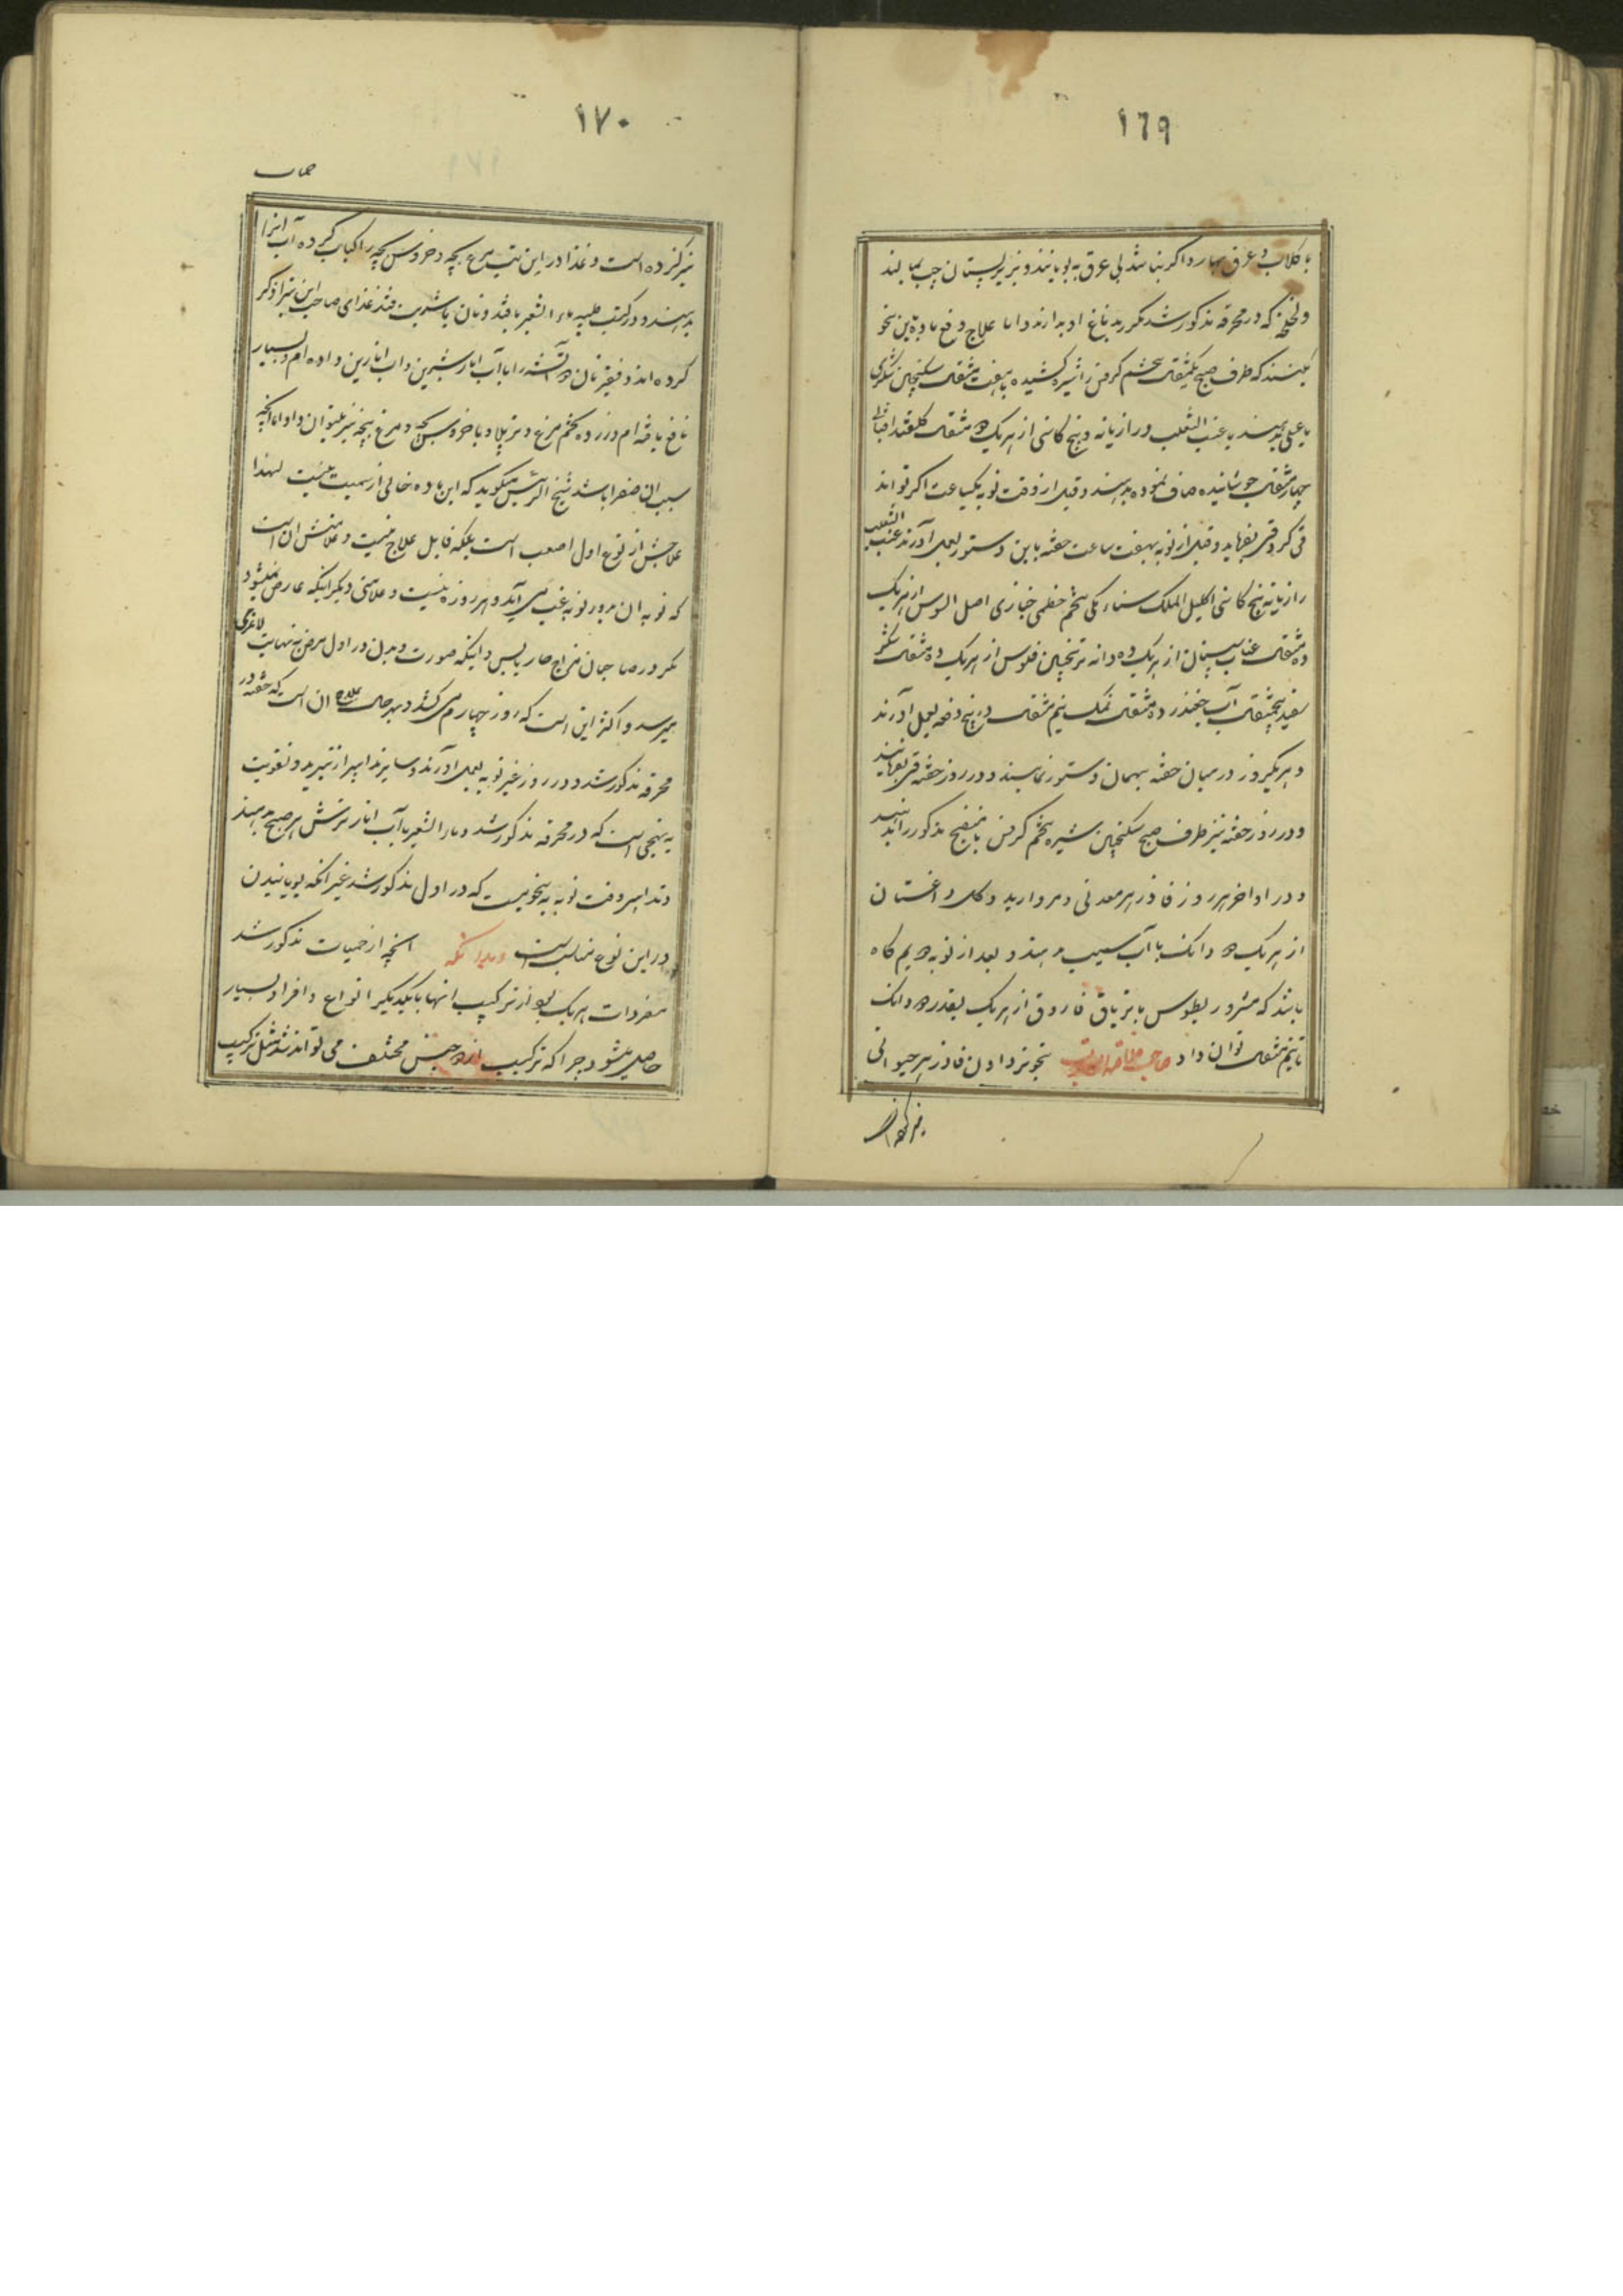 ۱۶۹
با گلاب و عرق بهار و اگر نباشد بی عرق به بویانند و بزیر پستان چپ بمالند
ولخلخه که در محرقه مذکور شد مکرر بدماغ او بدارند و اما علاج و دفع ماده باین نحو
بکنند که طرف صبح یکمثقال تخم کرفس را شیره کشیده با هفت مثقال سکنجبین شکری
بدهند یا عنب الثعلب و رازیانه و بیخ کاسنی از هر یک دو مثقال گلقند افتابی
چهار مثقال جوشانیده صاف نموده بدهند و قبل از وقت نوبه بیکساعت اگر تواند
قی کرد قی بفرماید و قبل از نوبه بهفت ساعت حقنه باین دستور بعمل آورند عنب الثعلب
رازیانه بیخ کاسنی اکلیل الملک سناء مکی تخم خطمی خبازی اصل السوس از هر یک
دو مثقال عناب سپستان از هر یک ده دانه ترنجبین فلوس از هر یک ده مثقال شکر
سفید پنجمثقال آب چغندر ده مثقال نمک نیم مثقال در پنج دفعه بعمل آورند
و هر یکروز در میان حقنه بهمان دستور نمایند و در روز حقنه قی بفرمایند
و در روز حقنه نیز طرف صبح سکنجبین شیره تخم کرفس یا منضج مذکور را بدهند
و در اواخر هر روز فادزهر معدنی و مروارید و گل داغستان
از هر یک دو دانک با آب سیب بدهند و بعد از نوبه دویم گاه
باشد که مثرودیطوس یا تریاق فاروق از هر یک بقدر دو دانک
تا نیم مثقال توان داد صاحب تجویز دادن فادزهر حیوانی
نیز کرده است
۱۷۰
حمیات
نیز کرده است و غذا در این تب مرغ بچه و خروس بچه را کباب کرده آب انرا
بدهند و در کتب طبیه ماء الشعیر با قند و نان با شربت قند غذای صاحب این تب را ذکر
کرده اند و فقیر نان دو آتشه را با آب انار شیرین و آب انارین داده ام و بسیار
نافع یافته ام و زرده تخم مرغ و تر پلا و با خروس بچه و مرغ بچه نیز میتوان داد اما آنچه
سبب ان صفرا باشد شیخ الرئیس میگوید که این ماده خالی از سمیت نیست لهذا
علاجش از نوع اول اصعب است بلکه قابل علاج نیست و علامتش ان است
که نوبه ان بدور نوبه غب می آید و هر روزه نیست و علامتی دیگر اینکه عارض نمیشود
مگر در صاحبان مزاج حار یابس و اینکه صورت و بدن در اول مرض به نهایت لاغری
میرسد و اکثر این است که روز چهارم می کشد و بهر حال علاج ان است که حقنه در
محرقه مذکور شد و در روز غیر نوبه بعمل آورند و سایر تدابیر از تبرید و تقویت
به نهجی است که در محرقه مذکور شد و ماء الشعیر با آب انار ترش هر صبح بدهند
و تدابیر وقت نوبه به نحویست که در اول مذکور شد غیر انکه بویانیدن
در این نوع مناسب است و بدانکه انچه از حمیات مذکور شد
مفردات هر یک بود از ترکیب انها با یکدیگر انواع و افراد بسیار
حاصل میشود چرا که ترکیب از دو جنس مختلف می تواند شد مثل ترکیب